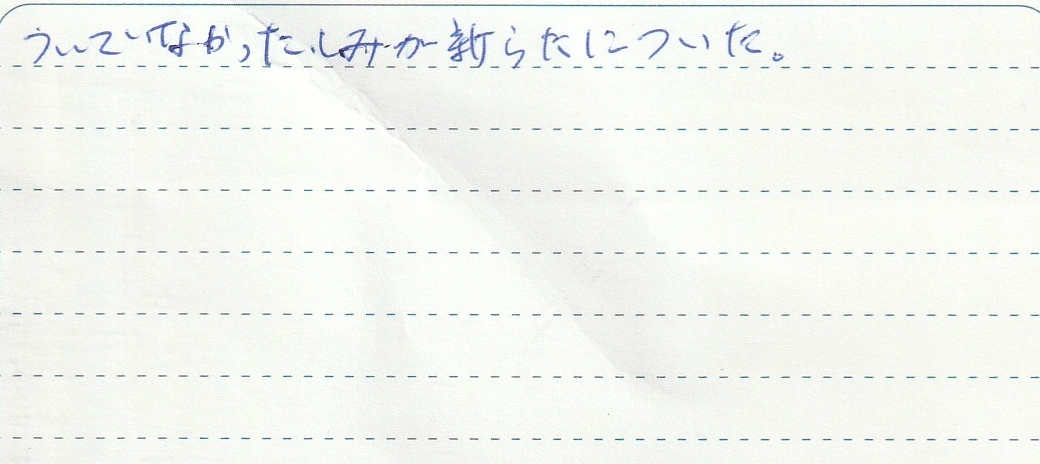 ういていなかった、しみが新らたについた。